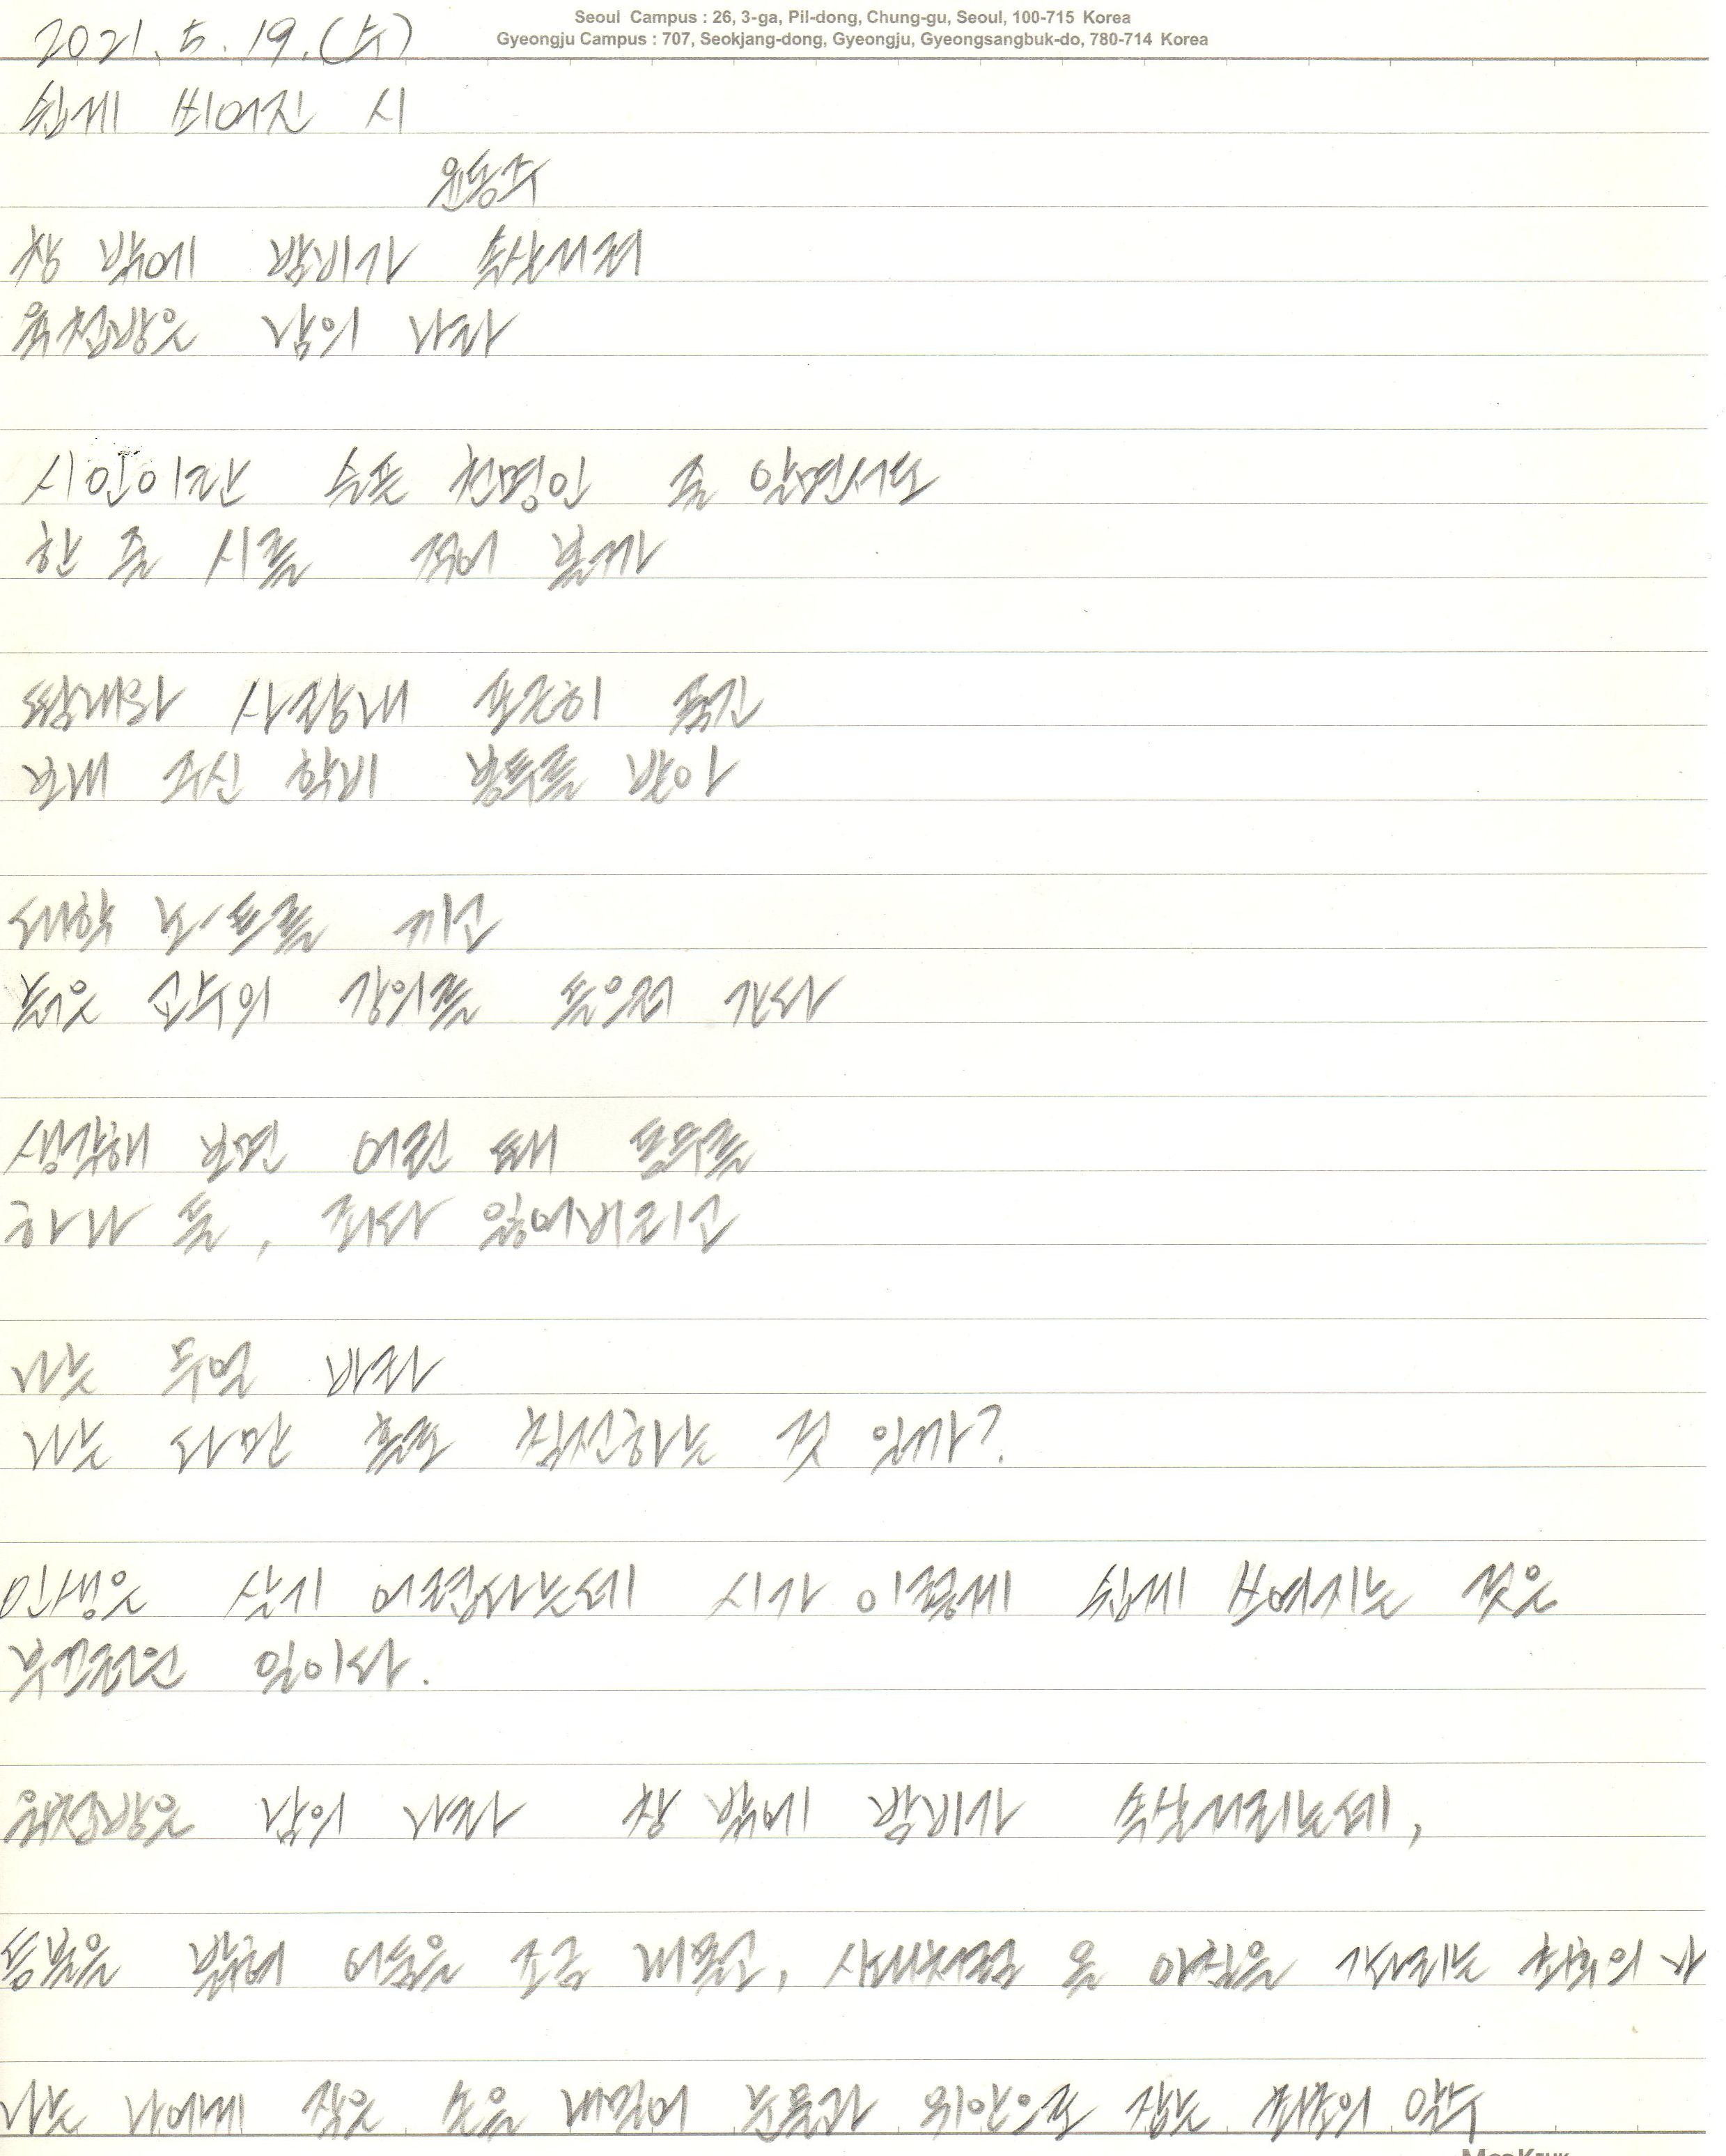 Seoul Campus : 26, 3-ga, Pil-dong, Chung-gu, Seoul, 100-715 Korea
Gyeongju Campus : 707, Seokjang-dong, Gyeongju, Gyeongsangbuk-do, 780-714 Korea
2021. 5. 19. (수)
쉽게 씌어진 시
윤동주
창 밖에 밤비가 속살거려
육첩방은 남의 나라
시인이란 슬픈 천명인 줄 알면서도
한 줄 시를 적어 볼까
땀내와 사랑내 포근히 품긴
보내 주신 학비 봉투를 받아
대학 노-트를 끼고
늙은 교수의 강의를 들으러 간다
생각해 보면 어린 때 동무를
하나 둘, 죄다 잃어버리고
나는 무얼 바라
나는 다만 홀로 침전하는 것 일까?
인생은 살기 어렵다는데 시가 이렇게 쉽게 쓰여지는 것은
부끄러운 일이다.
육첩방은 남의 나라 창 밖에 밤비가 속살거리는데,
등불을 밝혀 어둠을 조금 내몰고, 시대처럼 올 아침을 기다리는 최후의 나
나는 나에게 작은 손을 내밀어 눈물과 위안으로 잡는 최초의 악수